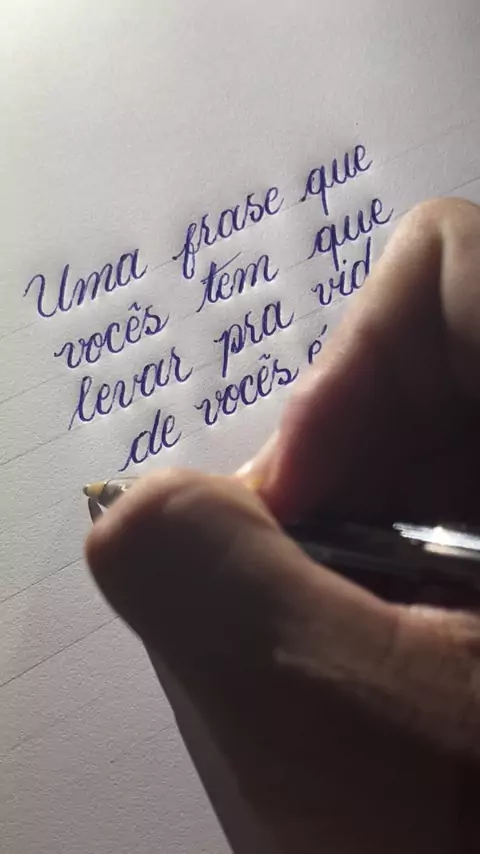 Uma frase que
vocês tem que
levar pra vid
de vocês é